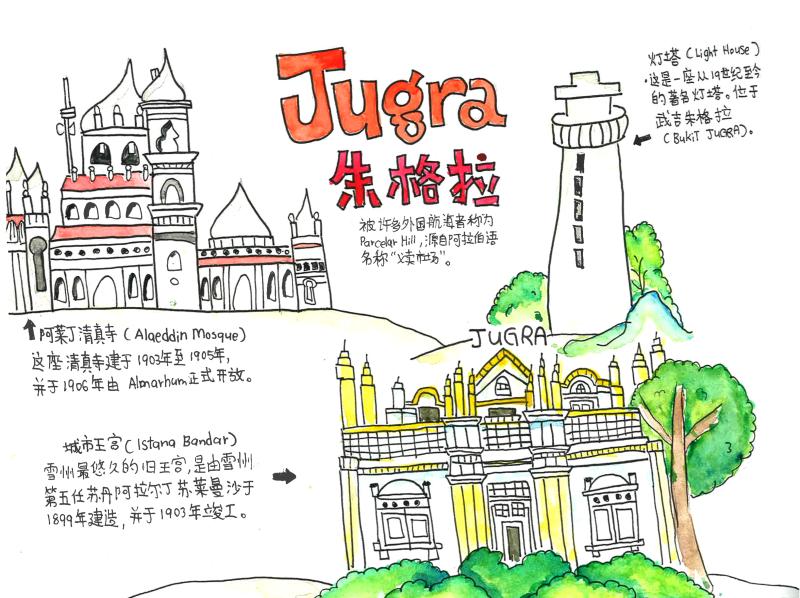 Jugra
朱格拉
被许多外国航海者称为
Parcelar Hill,源自阿拉伯语
名称“义卖市场”。
灯塔(Light House)
·这是一座从19世纪至今
的著名灯塔。位于
武吉朱格拉
(Bukit JUGRA)。
阿莱丁清真寺(Alaeddin Mosque)
这座清真寺建于1903年至1905年,
并于1906年由Almarhum正式开放。
JUGRA
城市王宫(Istana Bandar)
雪州最悠久的旧王宫,是由雪州
第五任苏丹阿拉尔丁苏莱曼沙于
1899年建造,并于1903年竣工。